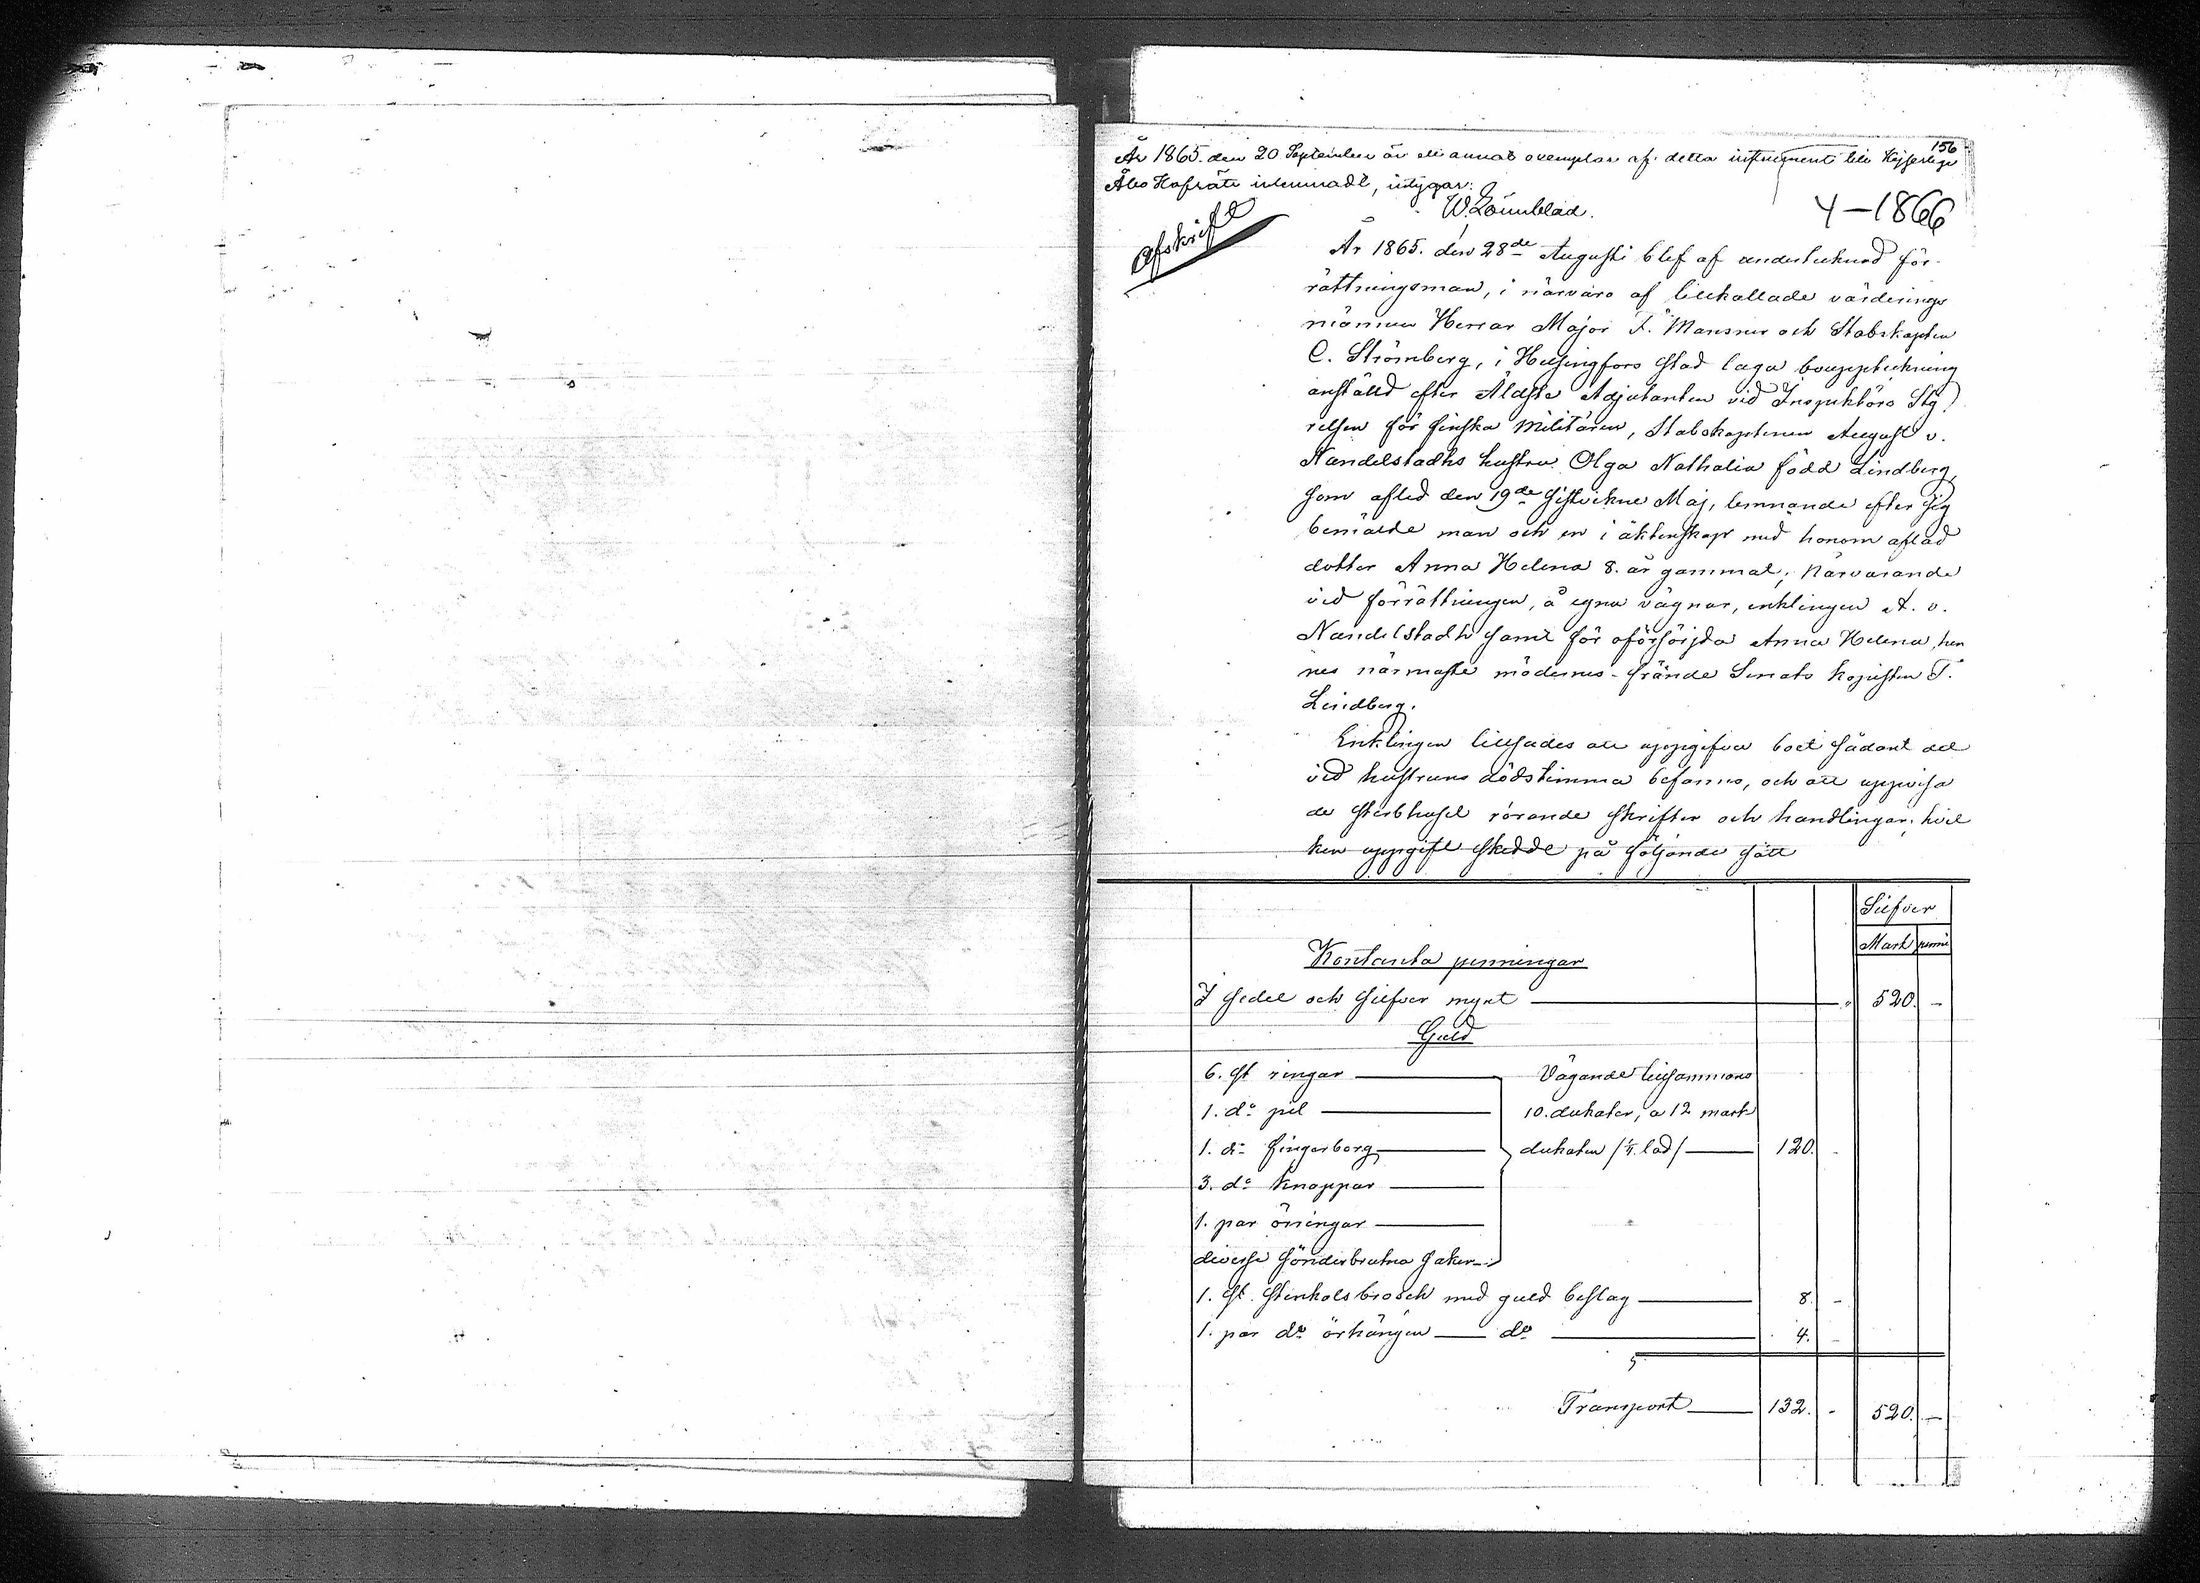 156
År 1865. den 20 September är ett annat exemplar af detta instrument till Kejserliga
Åbo Hofrätt inlemnadt, intygar:
W. Lönnblad.
4-1866
Afskrift
År 1865. den 28de Augusti blef af undertecknad för-
rättningsman, i närvaro af tillkallade värderings
männen Herrar Major F. Mansner och Stabskapten
C. Strömberg, i Helsingfors stad laga bouppteckning
anställd efter Äldste Adjutanten vid Inspektörs Sty
relsen för finska Militären, Stabskaptenen August v.
Nandelstadhs hustru Olga Nathalia född Lindberg,
som afled den 19de sistvikne Maj, lemnande efter sig
bemälde man och en i äktenskap med honom aflad
dotter Anna Helena 8. år gammal; närvarande
vid förrättningen, å egna vägnar, enklingen A. v.
Nandelstadh samt för oförsörjda Anna Helena, hen
nes närmaste mödernes-frände Senats kopisten F.
Lindberg.
Enklingen tillsades att uppgifva boet sådant det
vid hustruns dödstimma befanns, och att uppvisa
de sterbhuset rörande skrifter och handlingar; hvil
ken uppgift skedde på följande sätt
Silfver
Mark penni
Kontanta penningar
I sedel och silfver mynt 520. -
Guld
6. st ringar Vägande tillsammans
1. do pil 10. dukater, a 12 mark
1. do fingerborg dukaten /¼ lod/ 120. -
3. do knappar
1. par örringar
diverse sönderbrutna saker
1. st. stenkolsbrosch med guld beslag 8. -
1. par do örhängen do 4. -
Transport 132. - 520. -